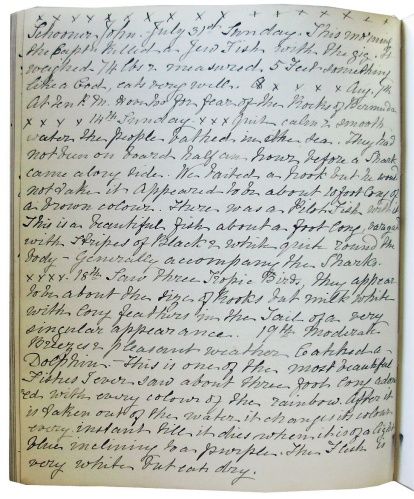 x x x x x x x x x x x
Schooner John. July 31st Sunday. This morning
the Capt killed a Jew Fish with the gig. it
weighed 74 lbs & measured 5 Feet something
like a Cod, eats very well. & x x x x Aug 7th
At 2 A.M. for fear of the Rocks of Bermuda
x x x x 14th Sunday x x x Quit calm & smooth
water the people bathed in the Sea. They had
not been on board half an hour before a Shark
came along side. We baited a hook but he would
not take it appeared to be about 10 foot long of
a brown colour. There was a Pilot Fish with it
This is a beautiful fish about a foot long
with Stripes of Black & white quit round the
body - Generally accompany the Sharks.
x x x x 18th Saw three Tropic Birds, they appear
to be about the size of Rooks but milk white
with long feathers in the Tail of a very
singular appearance. 19th Moderate
Breezes & pleasant weather Catched a
Dolphin - This is one of the most beautiful
Fishes I ever saw about three foot long adorn
ed with every colour of the rainbow. After it
is taken out of the water it changes its colour
every instant till it dies when it is of a light
blue inclining to a purple. The Flesh is
very white but eats dry.